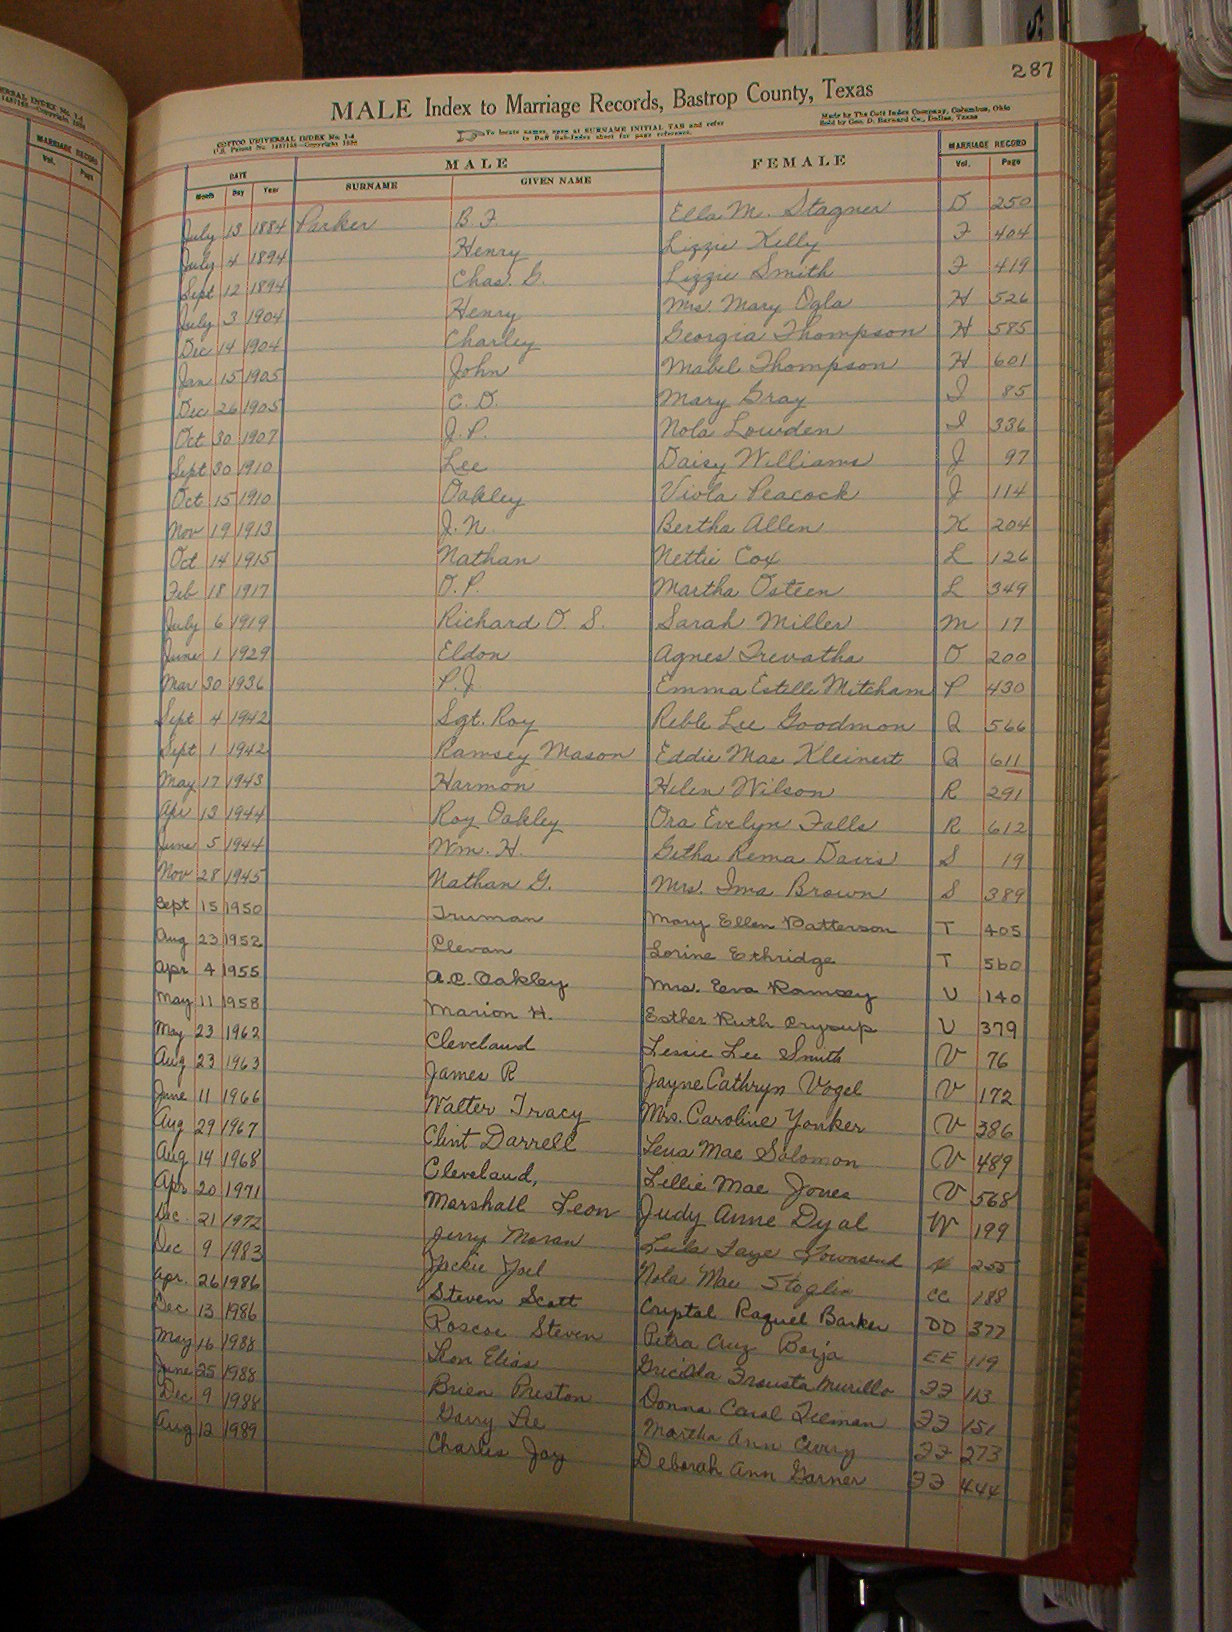 287
MALE Index to Marriage Records, Bastrop County, Texas
COTTCO UNIVERSAL INDEX No. 1-4
U.S. Patent No. 1487148—Copyright 1920
To locate names, open at SURNAME INITIAL TAB and refer
to Duff Sub-Index sheet for page reference.
Made by The Cott Index Company, Columbus, Ohio
Sold by Geo. D. Barnard Co., Dallas, Texas
DATE MALE FEMALE MARRIAGE RECORD
Month Day Year SURNAME GIVEN NAME Vol. Page
MARRIAGE RECORD
Vol. Page
July 13 1884 Parker B. F. Ella M. Stagner D 250
July 4 1894 Henry Lizzie Kelly F 404
Sept 12 1894 Chas. G. Lizzie Smith F 419
July 3 1904 Henry Mrs. Mary Ogla H 526
Dec 14 1904 Charley Georgia Thompson H 585
Jan 15 1905 John Mabel Thompson H 601
Dec 26 1905 C. D. Mary Gray I 85
Oct 30 1907 J. P. Nola Lowden I 336
Sept 30 1910 Lee Daisy Williams J 97
Oct 15 1910 Oakley Viola Peacock J 114
Nov 19 1913 J. N. Bertha Allen K 204
Oct 14 1915 Nathan Nettie Cox L 126
Feb 18 1917 O. P. Martha Osteen L 349
July 6 1919 Richard O. S. Sarah Miller M 17
June 1 1929 Eldon Agnes Trevatha O 200
Mar 30 1936 P. J. Emma Estelle Mitcham P 430
Sept 4 1942 Sgt. Roy Reble Lee Goodmon Q 566
Sept 1 1942 Ramsey Mason Eddie Mae Kleinert Q 611
May 17 1943 Harmon Helen Wilson R 291
Apr 13 1944 Roy Oakley Ora Evelyn Falls R 612
June 5 1944 Wm. H. Getha Rema Davis S 19
Nov 28 1945 Nathan G. Mrs. Ima Brown S 389
Sept 15 1950 Truman Mary Ellen Patterson T 405
Aug 23 1952 Clevan Lorine Ethridge T 560
Apr 4 1955 A. C. Oakley Mrs. Eva Ramsey U 140
May 11 1958 Marion H. Esther Ruth Crysup U 379
May 23 1962 Cleveland Lessie Lee Smith V 76
Aug 23 1963 James R Jayne Cathryn Vogel V 172
June 11 1966 Walter Tracy Mrs. Caroline Yonker V 386
Aug 29 1967 Clint Darrell Lena Mae Solomon V 489
Aug 14 1968 Cleveland, Lillie Mae Jones V 568
Apr 20 1971 Marshall Leon Judy Anne Dyal W 199
Dec. 21 1972 Jerry Moran Lula Faye Townsend 255
Dec 9 1983 Jackie Joel Nola Mae Stoglin CC 188
Apr. 26 1986 Steven Scott Cryptal Raquel Barker DD 377
Dec 13 1986 Roscoe Steven Petra Cruz Borja EE 119
May 16 1988 Leon Elias Gricelda Frausto Murillo FF 113
June 25 1988 Brien Preston Donna Carol Tilman FF 151
Dec 9 1988 Garry Lee Martha Ann Avery FF 273
Aug 12 1989 Charles Jay Deborah Ann Garner FF 444